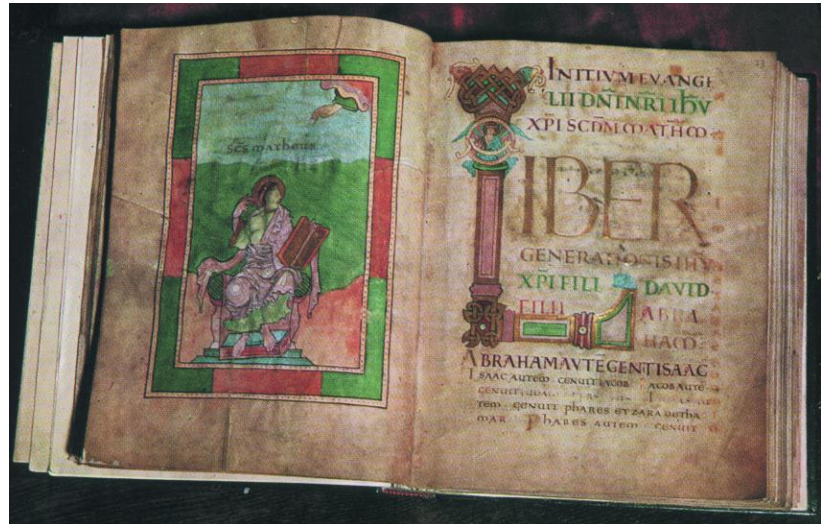 SCS MATHEUS
23
INITIUM EVANGE
LII DNI NRI IHV
XPI SCDM MATHM
LIBER
GENERATIONIS IHV
XPI FILI DAVID
FILII ABRA
HAM
ABRAHAM AUTE GENUIT ISAAC
ISAAC AUTEM GENUIT IACOB IACOB AUTE
GENUIT
TEM GENUIT PHARES ET ZARA DE THA
MAR PHARES AUTEM GENUIT